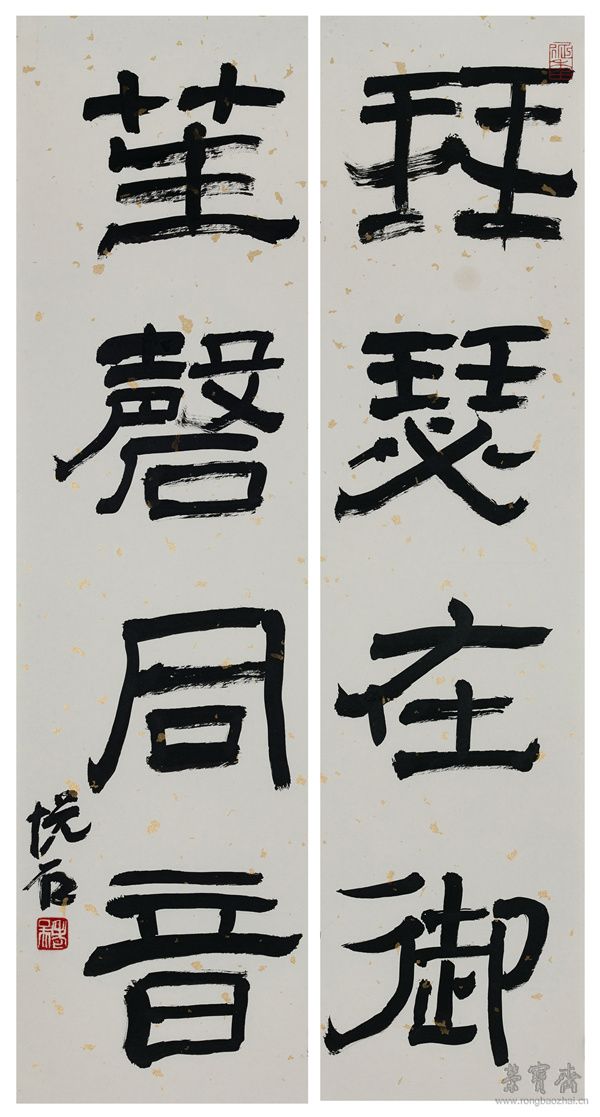 琴瑟在御
笙磬同音
悦石
榮寶齋
www.rongbaozhai.cn